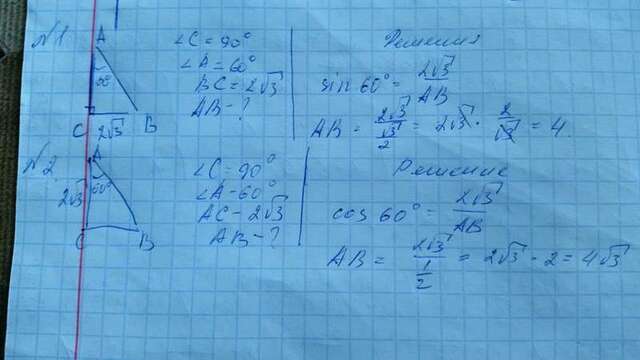 №1
A
60°
C 2√3 B
∠C = 90°
∠A = 60°
BC = 2√3
AB - ?
Решения
sin 60° = 2√3 / AB
AB = 2√3 / (√3 / 2) = 2√3 · 2 / √3 = 4.
№2
A
2√3 60°
C B
∠C = 90°
∠A - 60°
AC - 2√3
AB - ?
Решение
cos 60° = 2√3 / AB
AB = 2√3 / (1 / 2) = 2√3 - 2 = 4√3